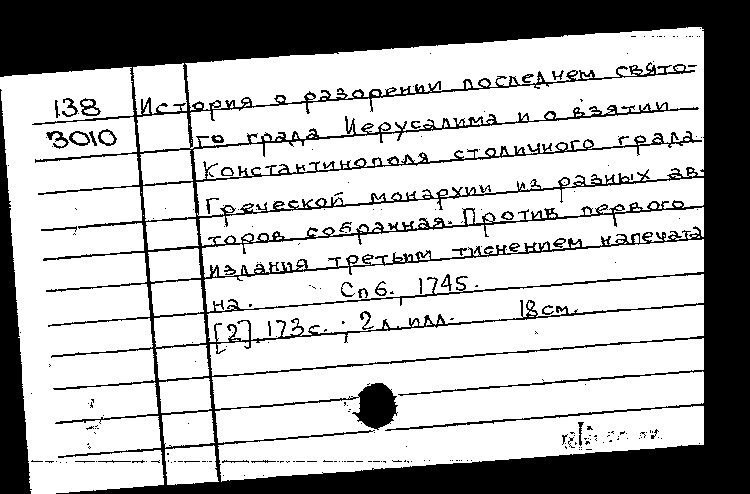 138 История о разорении последнем свято-
3010 го града Иерусалима и о взятии
Константинополя столичного града
Греческой монархии из разных ав-
торов собранная. Против первого
издания третьим тиснением напечата
на. Спб., 1745.
[2], 173 с.; 2 л. илл. 18 см.